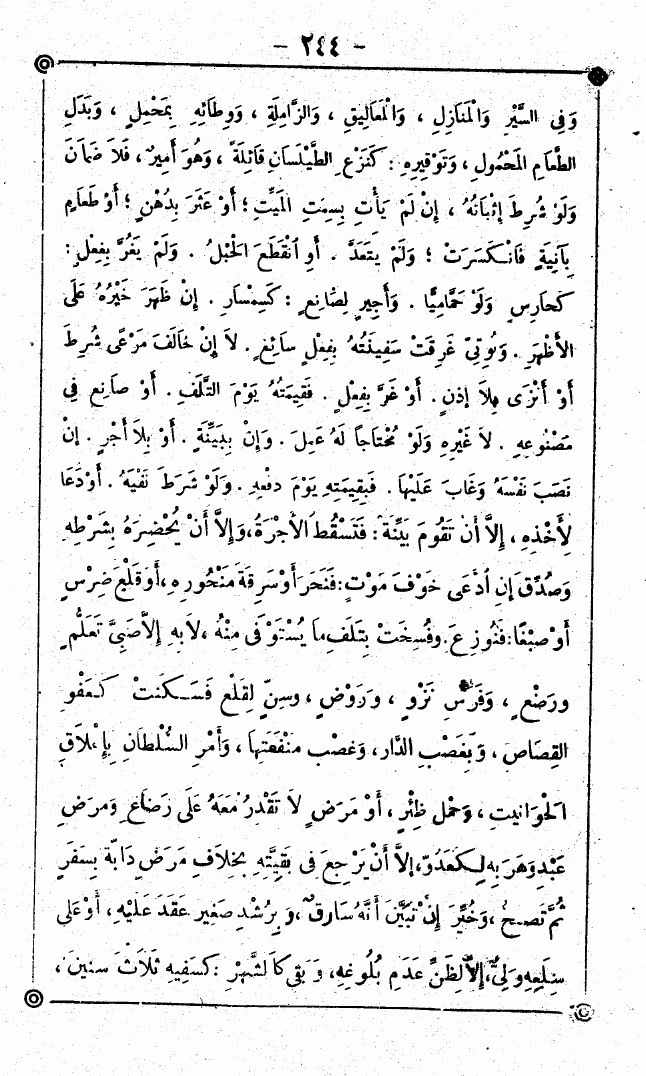 - ٢٤٤ -
وَفِى السَّيْرِ وَالْمَنَازِلِ ، وَالْمَعَالِيقِ ، وَالزَّامِلَةِ ، وَوِطَائِهِ بِمَحْمِلٍ ، وَبَدَلِ
الطَّعَامِ الْمَحْمُولِ ، وَتَوْفِيرِهِ : كَنَزْعِ الطَّيْلَسَانِ قَائِلَةً ، وَهُوَ أَمِينٌ ، فَلَا ضَمَانَ
وَلَوْ شُرِطَ إِثْبَاتُهُ ، إِنْ لَمْ يَأْتِ بِسِمَتِ الْمَيِّتِ ؛ أَوْ عَثَرَ بِدُهْنٍ ؛ أَوْ طَعَامٍ
بِآنِيَةٍ فَانْكَسَرَتْ ؛ وَلَمْ يَتَعَدَّ . أَوِ انْقَطَعَ الْحَبْلُ . وَلَمْ يَغُرَّ بِفِعْلٍ :
كَحَارِسٍ وَلَوْ حَمَّامِيًّا . وَأَجِيرٍ لِصَانِعٍ : كَسِمْسَارٍ . إِنْ ظَهَرَ خَيْرُهُ عَلَى
الْأَظْهَرِ . وَنُوتِىٍّ غَرِقَتْ سَفِينَتُهُ بِفِعْلٍ سَائِغٍ . لَا إِنْ خَالَفَ مَرْعًى شُرِطَ
أَوْ أَنْزَى بِلَا إِذْنٍ . أَوْ غَرَّ بِفِعْلٍ . فَقِيمَتُهُ يَوْمَ التَّلَفِ . أَوْ صَانِعٍ فِى
مَصْنُوعِهِ . لَا غَيْرِهِ وَلَوْ مُحْتَاجًا لَهُ عَمِلَ . وَإِنْ بِبَيِّنَةٍ . أَوْ بِلَا أَجْرٍ . إِنْ
نَصَبَ نَفْسَهُ وَغَابَ عَلَيْهَا . فَبِقِيمَتِهِ يَوْمَ دَفْعِهِ . وَلَوْ شَرَطَ نَفْيَهُ . أَوْ دَعَا
لِأَخْذِهِ ، إِلَّا أَنْ تَقُومَ بَيِّنَةٌ : فَتَسْقُطُ الْأُجْرَةُ ، وَإِلَّا أَنْ يُحْضِرَهُ بِشَرْطِهِ
وَصُدِّقَ إِنِ ادَّعَى خَوْفَ مَوْتٍ : فَنَحَرَ أَوْ سَرِقَةَ مَنْحُورِهِ ، أَوْ قَلْعَ ضِرْسٍ
أَوْ صِبْغًا : فَنُوزِعَ . وَفُسِخَتْ بِتَلَفِ مَا يُسْتَوْفَى مِنْهُ ، لَا بِهِ إِلَّا صَبِىَّ تَعَلُّمٍ
وَرَضْعٍ ، وَفَرَسَ نَزْوٍ ، وَرَوْضٍ ، وَسِنٍّ لِقَلْعٍ فَسَكَنَتْ كَعَفْوِ
الْقِصَاصِ ، وَبِغَصْبِ الدَّارِ ، وَغَصْبِ مَنْفَعَتِهَا ، وَأَمْرِ السُّلْطَانِ بِإِغْلَاقِ
الْحَوَانِيتِ ، وَحَمْلِ ظِئْرٍ ، أَوْ مَرَضٍ لَا تَقْدِرُ مَعَهُ عَلَى رَضَاعٍ وَمَرَضِ
عَبْدٍ وَهَرَبِهِ لِكَعَدُوٍّ ، إِلَّا أَنْ يَرْجِعَ فِى بَقِيَّتِهِ بِخِلَافِ مَرَضِ دَابَّةٍ بِسَفَرٍ
ثُمَّ تَصِحُّ ، وَخُيِّرَ إِنْ تَبَيَّنَ أَنَّهُ سَارِقٌ ، وَبِرُشْدِ صَغِيرٍ عَقَدَ عَلَيْهِ ، أَوْ عَلَى
سِلَعِهِ وَلِىٌّ ، إِلَّا لِظَنِّ عَدَمِ بُلُوغِهِ ، وَبَقِىَ كَالشَّهْرِ : كَسَفِيهٍ ثَلَاثَ سِنِينَ ،